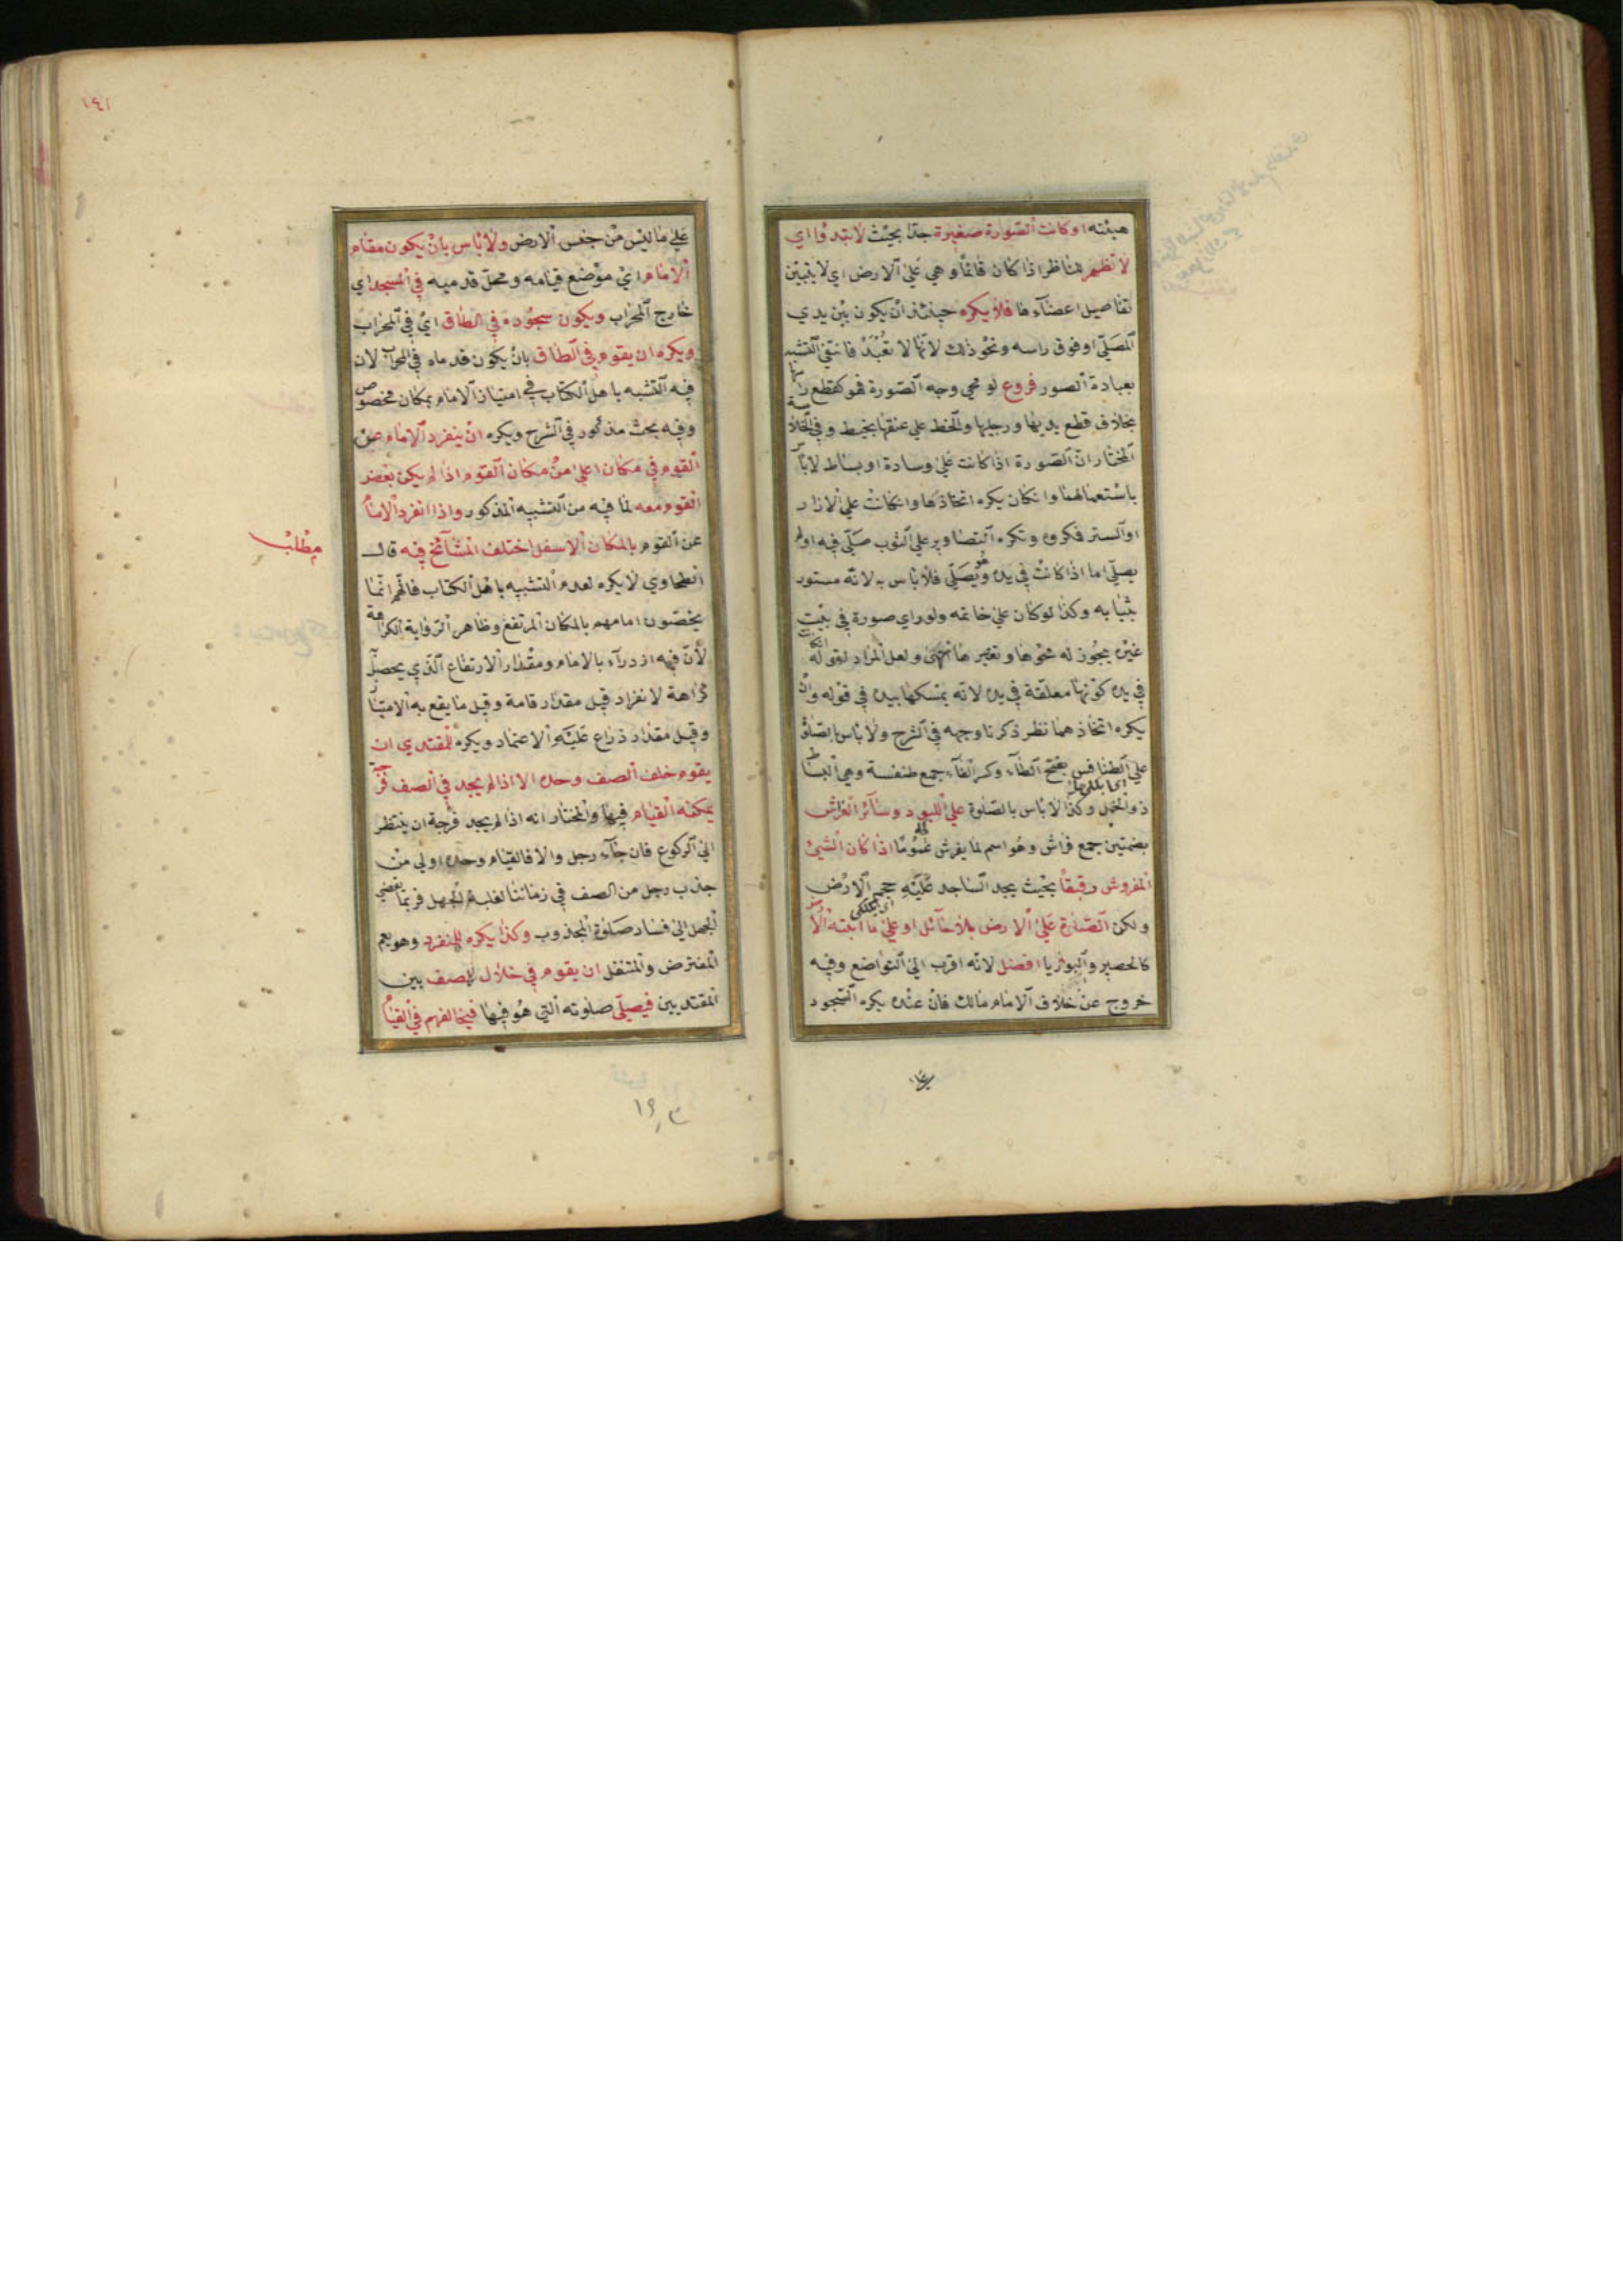 هيئته او كانت الصورة صغيرة جدا بحيث لا تبدوا اي
لا تظهر للناظر اذا كان قائما وهي على الارض اي لا يتبين
تفاصيل اعضآءها فلا يكره حينئذ ان يكون بين يدي
المصلي او فوق راسه ونحو ذلك لانها لا تعبد فانتفى التشبه
بعبادة الصور فروع لو محي وجه الصورة فهو كقطع راسها
بخلاف قطع يديها ورجليها والخط على عنقها بخيط وفي الخلاصة
المختار ان الصورة اذا كانت على وسادة او بساط لا باس
باستعمالهما وان كان يكره اتخاذها وان كانت على الازار
او الستر فكروه وتكره التصاوير على الثوب صلى فيه او لم
يصلي اما اذا كانت في يده وهو يصلي فلا باس به لانه مستور
بثيابه وكذا لو كان على خاتمه ولو راى صورة في بيت
غيره يجوز له محوها وتغييرها انتهى ولعل المراد بقوله
في يده كونها معلقة في يده لانه يمسكها بيده في قوله وان
يكره اتخاذهما نظر ذكرنا وجهه في الشرح ولا باس بالصلوة
على الطنافس بفتح الطآء وكسر الفآء جمع طنفسة وهي البساط
ذو الخمل وكذا لا باس بالصلوة على اللبود وسآئر الفرش
بضمتين جمع فراش وهو اسم لما يفرش عموما اذا كان الشئ
المفروش رقيقا بحيث يجد الساجد عليه حجم الارض
ولكن الصلوة على الارض بلا حآئل او على ما انبتته الارض
كالحصير والبوريا افضل لانه اقرب الى التواضع وفيه
خروج عن خلاف الامام مالك فان عنده يكره السجود
١٤١
على ما ليس من جنس الارض ولا باس بان يكون مقام
الامام اي موضع قيامه ومحل قدميه في المسجد اي
خارج المحراب ويكون سجوده في الطاق اي في المحراب
ويكره ان يقوم في الطاق بان يكون قدماه في المحراب لان
فيه التشبه باهل الكتاب في امتياز الامام بمكان مخصوص
وفيه بحث مذكور في الشرح ويكره ان ينفرد الامام عن
القوم في مكان اعلى من مكان القوم اذا لم يكن بعض
القوم معه لما فيه من التشبيه المذكور واذا انفرد الامام
عن القوم بالمكان الاسفل اختلف المشآئخ فيه قال
مطلب
الطحاوي لا يكره لعدم التشبيه باهل الكتاب فانهم انما
يخصون امامهم بالمكان المرتفع وظاهر الرواية الكراهة
لان فيه ازدرآء بالامام ومقدار الارتفاع الذي يحصل
كراهة لانفراد قيل مقدار قامة وقيل ما يقع به الامتياز
وقيل مقدار ذراع عليه الاعتماد ويكره للمقتدي ان
يقوم خلف الصف وحده الا اذا لم يجد في الصف فرجة
يمكنه القيام فيها والمختار انه اذا لم يجد فرجة ان ينتظر
الى الركوع فان جآء رجل والا فالقيام وحده اولى من
جذب رجل من الصف في زماننا لغلبة الجهل فربما يفضي
الجهل الى فساد صلوة المجذوب وكذا يكره للمنفرد وهو يعم
المفترض والمتنفل ان يقوم في خلال الصف بين
المقتديين فيصلي صلوته التي هو فيها فيخالفهم في القيام